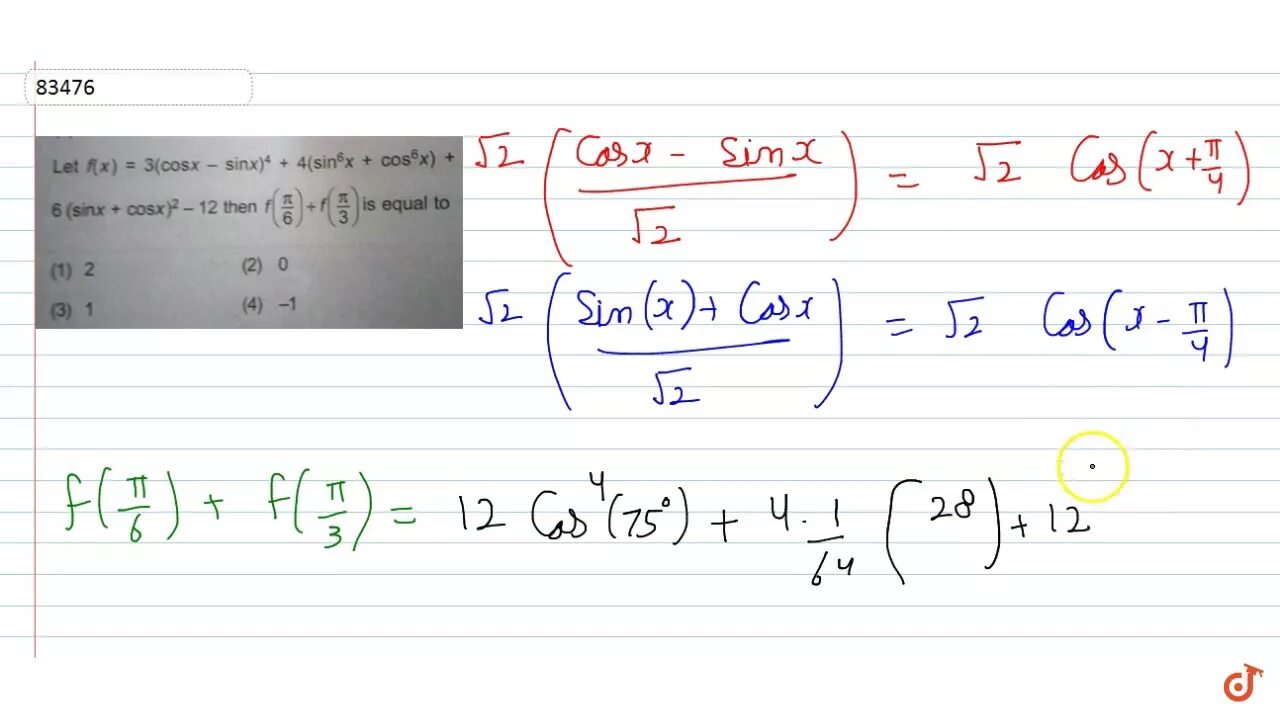 83476
Let f(x) = 3(cosx – sinx)⁴ + 4(sin⁶x + cos⁶x) +
6 (sinx + cosx)² – 12 then f(π/6) + f(π/3) is equal to
(1) 2 (2) 0
(3) 1 (4) –1
√2 ((Cosx - Sinx)/√2) = √2 Cos(x + π/4)
√2 ((Sin(x) + Cosx)/√2) = √2 Cos(x - π/4)
f(π/6) + f(π/3) = 12 Cos⁴(75°) + 4 · 1/64 (28) + 12